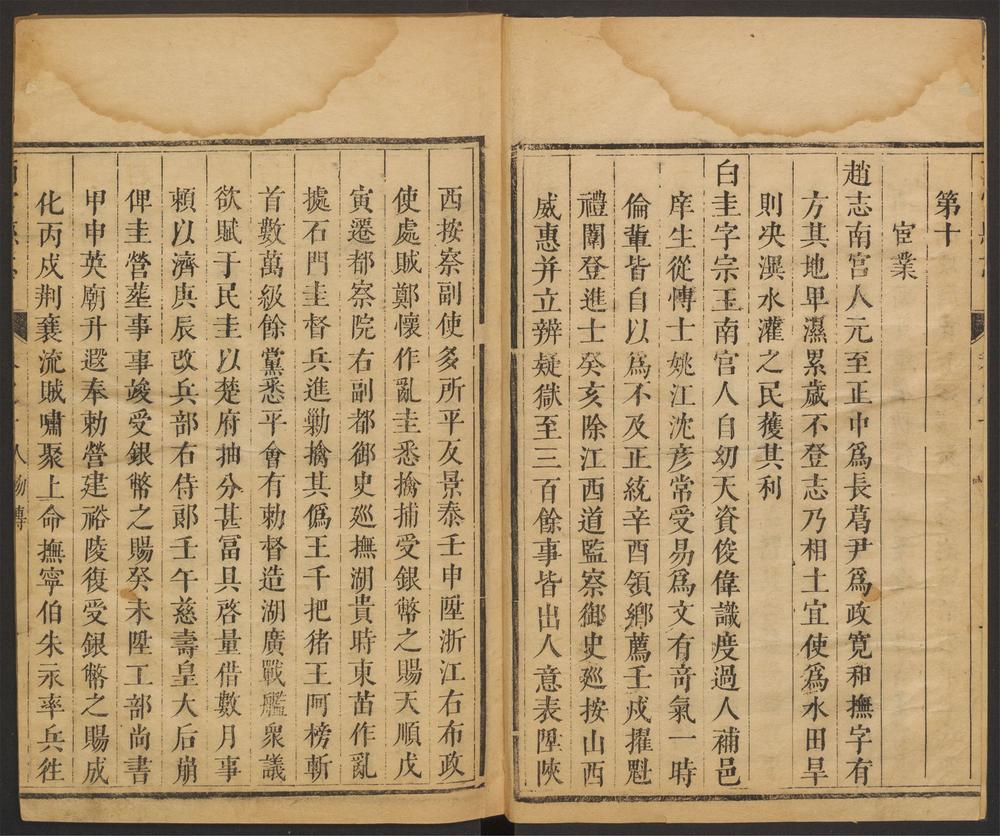 第十
宦業
趙志南宮人元至正中爲長葛尹爲政寬和撫字有
方其地卑濕累歲不登志乃相土宜使爲水田旱
則決潩水灌之民獲其利
白圭字宗玉南宮人自幼天資俊偉識度過人補邑
庠生從愽士姚江沈彥常受易爲文有竒氣一時
倫輩皆自以爲不及正統辛酉領鄉薦壬戍擢魁
禮闈登進士癸亥除江西道監察御史廵按山西
威惠并立辨疑獄至三百餘事皆出人意表陞陜
西按察副使多所平反景泰壬申陞浙江右布政
使處賊鄭懷作亂圭悉擒捕受銀幣之賜天順戊
寅遷都察院右副都御史廵撫湖貴時東苗作亂
㨿石門圭督兵進勦擒其僞王干把猪王阿榜斬
首數萬級餘黨悉平會有勅督造湖廣戰艦衆議
欲賦于民圭以楚府抽分甚冨具啓量借數月事
賴以濟庚辰改兵部右侍郎壬午慈壽皇大后崩
俾圭營塟事事竣受銀幣之賜癸未陞工部尚書
甲申英廟升遐奉勅營建裕陵復受銀幣之賜成
化丙戍荆襄流賊嘯聚上命撫寧伯朱永率兵徃
人物傳